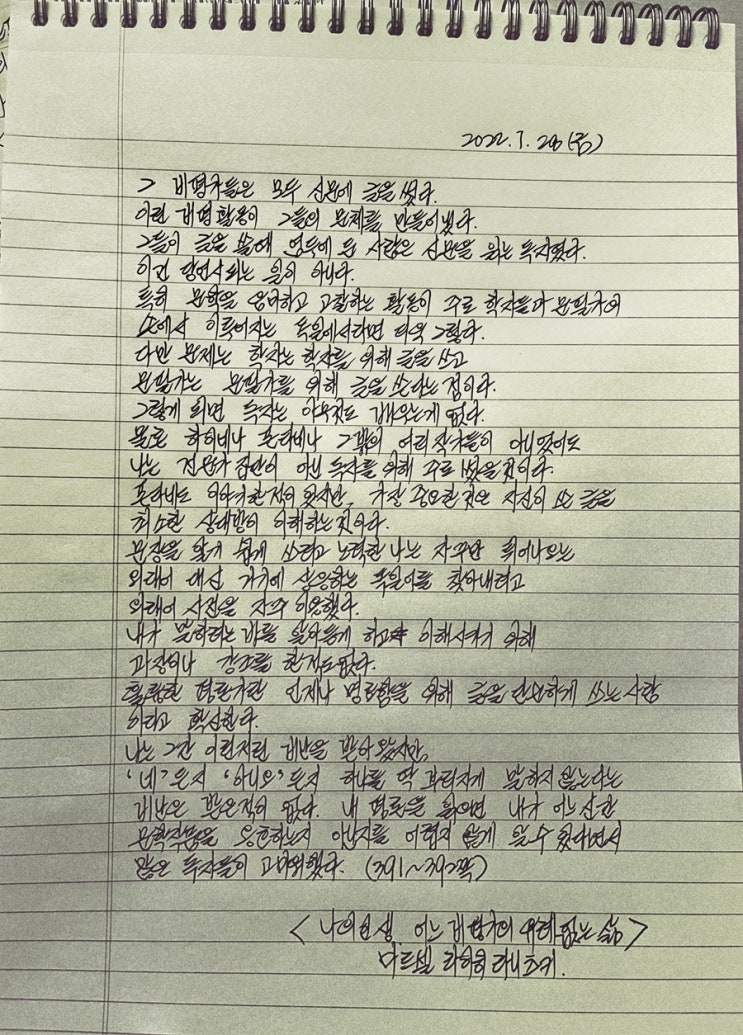 2022. 1. 28 (금)
그 비평가들은 모두 신문에 글을 썼다.
이런 비평활동이 그들의 문체를 만들어냈다.
그들이 글을 쓸때 염두에 둔 사람은 신문을 읽는 독자였다.
이건 당연시되는 일이 아니다.
특히 문학을 음미하고 고찰하는 활동이 주로 학자들과 문필가의
손에서 이루어지는 독일에서라면 더욱 그렇다.
다만 문제는 학자는 학자를 위해 글을 쓰고
문필가는 문필가를 위해 글을 쓴다는 점이다.
그렇게 되면 독자는 아무것도 배우는게 없다.
물론 하이네나 폰타네나 그밖의 여러 작가들이 아니었어도
나는 전문가 집단이 아닌 독자를 위해 주로 썼을것이다.
폰타네도 이야기한적이 있지만, 가장 중요한 것은 자신이 쓴 글을
최소한 상대방이 이해하는것이다.
문장을 알기 쉽게 쓰려고 노력한 나는 자꾸만 튀어나오는
외래어 대신 거기에 상응하는 독일어를 찾아내려고
외래어 사전을 자주 이용했다.
내가 말하려는 바를 알아듣게 하고 이해시키기 위해
과장이나 강조를 한적도 많다.
훌륭한 평론가란 언제나 명료함을 위해 글을 단순하게 쓰는 사람
이라고 확신한다.
나는 그간 이런저런 비난을 받아 왔지만,
'네'든지 '아니오'든지 하나를 딱 부러지게 말하지 않는다는
비난은 받은적이 없다. 내 평론을 읽으면 내가 어느 신간
문학작품을 옹호하는지 아닌지를 어렵지 않게 알 수 있다면서
많은 독자들이 고마워했다. (391~392쪽)
<나의 인생 어느 비평가의 유례 없는 삶>
마르셀 라이히 라니츠키.